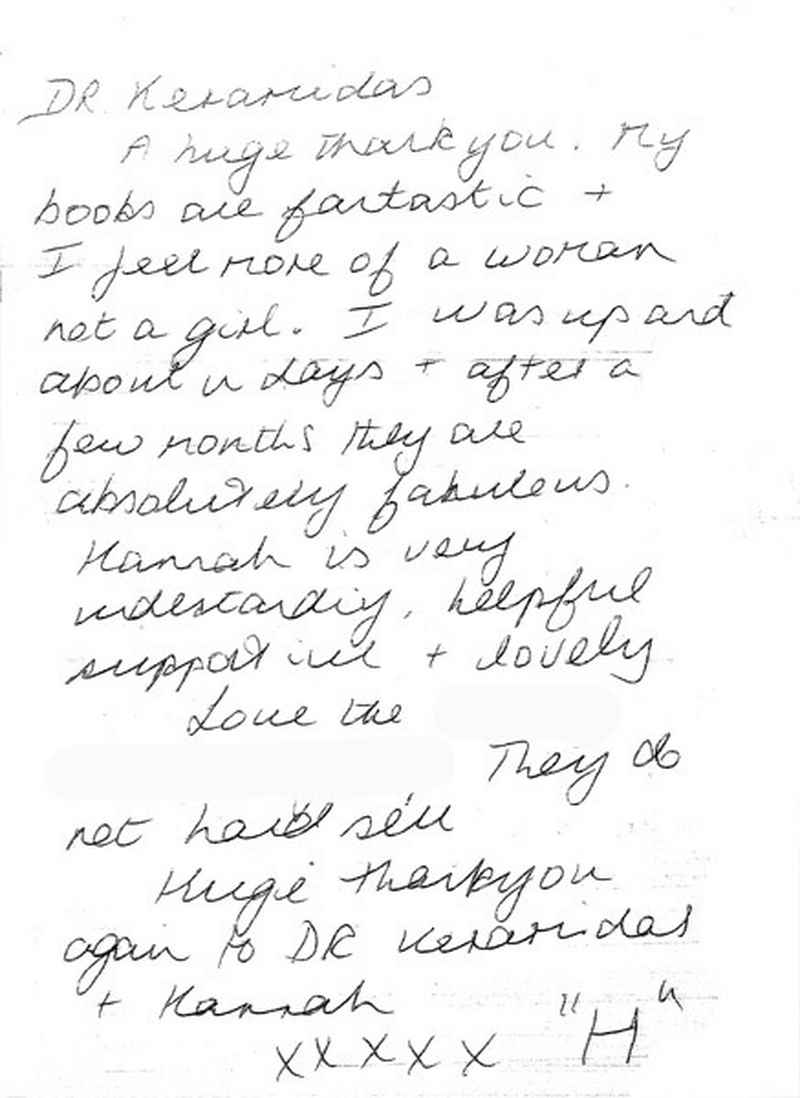 DR. Keramidas
A huge thank you. My
boobs are fantastic +
I feel more of a woman
not a girl. I was up and
about in days + after a
few months they are
absolutely fabulous.
Hannah is very
understanding, helpful
supportive + lovely
Love the
They do
not hard sell
Huge thankyou
again to DR Keramidas
+ Hannah "H"
X X X X X